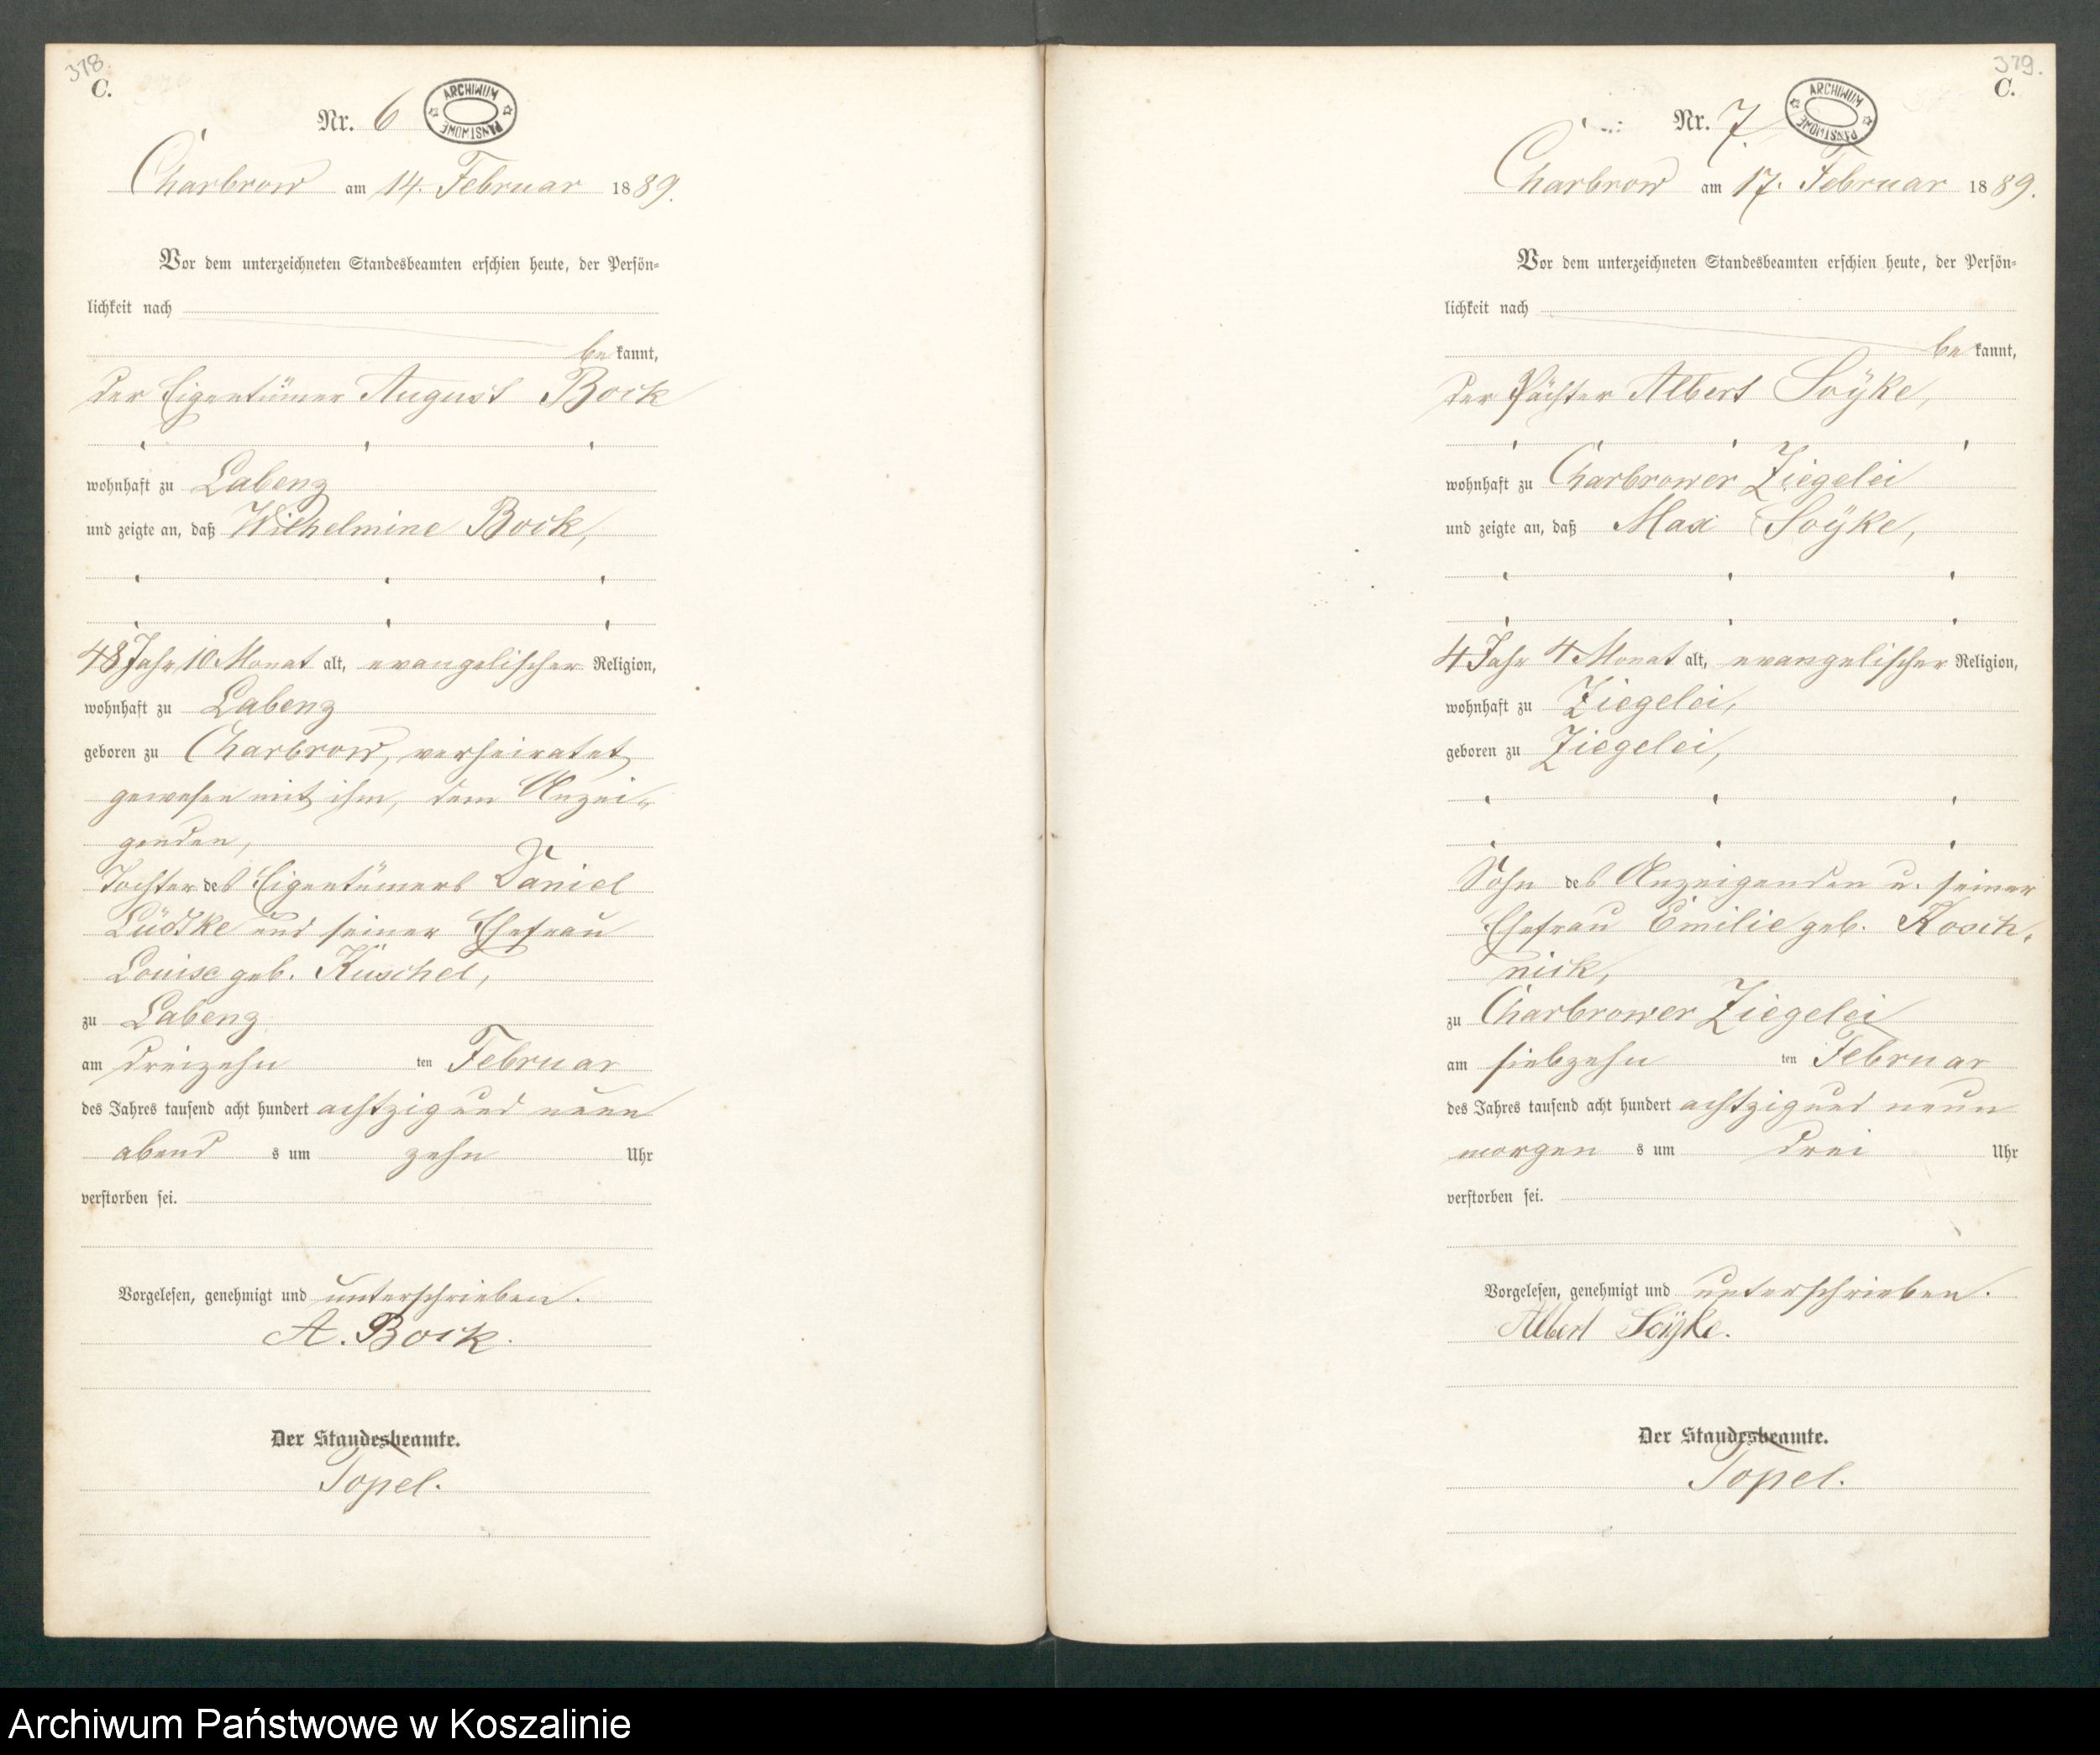 378
C.
Nr. 6
ARCHIWUM PAŃSTWOWE
Charbrow am 14. Februar 1889.
Vor dem unterzeichneten Standesbeamten erschien heute, der Persön=
lichkeit nach
bekannt,
der Eigentümer August Bock
wohnhaft zu Labenz
und zeigte an, daß Wilhelmine Bock,
48 Jahr 10 Monat alt, evangelischer Religion,
wohnhaft zu Labenz
geboren zu Charbrow, verheiratet
gewesen mit ihm, dem Anzei-
genden,
Tochter des Eigentümers Daniel
Lüdtke und seiner Ehefrau
Louise geb. Kuschel,
zu Labenz
am dreizehnten Februar
des Jahres tausend acht hundert achtzig und neun
abends um zehn Uhr
verstorben sei.
Vorgelesen, genehmigt und unterschrieben.
A. Bock.
Der Standesbeamte.
Topel.
379.
C.
Nr. 7.
ARCHIWUM PAŃSTWOWE
Charbrow am 17. Februar 1889.
Vor dem unterzeichneten Standesbeamten erschien heute, der Persön=
lichkeit nach
bekannt,
der Pächter Albert Soÿke,
wohnhaft zu Charbrower Ziegelei
und zeigte an, daß Max Soÿke,
4 Jahr 4 Monat alt, evangelischer Religion,
wohnhaft zu Ziegelei,
geboren zu Ziegelei,
Sohn des Anzeigenden u. seiner
Ehefrau Emilie geb. Kosch-
nick,
zu Charbrower Ziegelei
am siebzehnten Februar
des Jahres tausend acht hundert achtzig und neun
morgens um drei Uhr
verstorben sei.
Vorgelesen, genehmigt und unterschrieben.
Albert Soÿke.
Der Standesbeamte.
Topel.
Archiwum Państwowe w Koszalinie